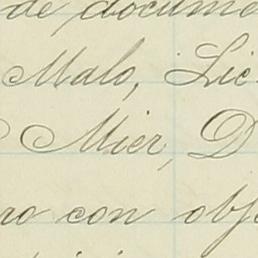 de docume
Malo, Lic
Mier, D
ro con obje